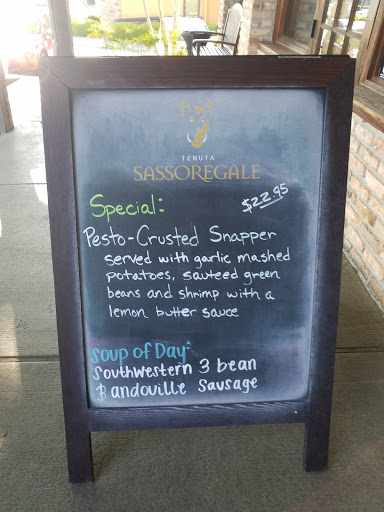 TENUTA
SASSOREGALE
Special:
$22.95
Pesto-Crusted Snapper
served with garlic mashed
potatoes, sauteed green
beans and shrimp with a
lemon butter sauce
Soup of Day:
Southwestern 3 bean
& andoville Sausage